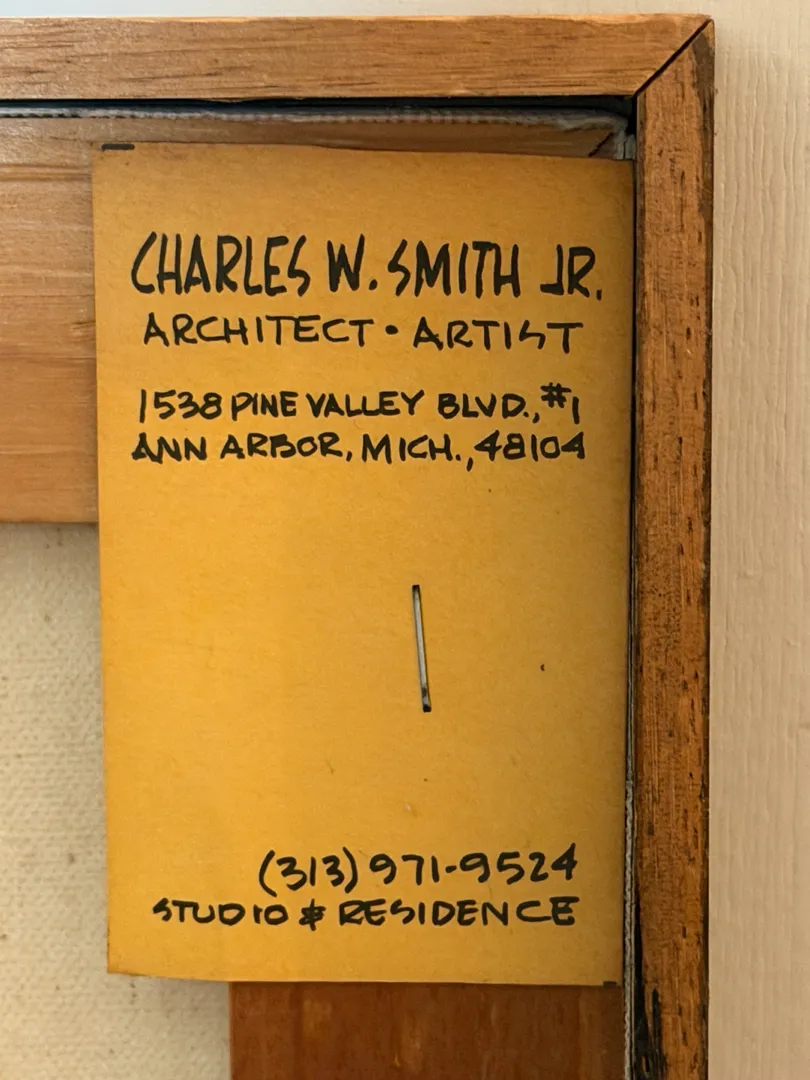 CHARLES W. SMITH JR.
ARCHITECT • ARTIST
1538 PINE VALLEY BLVD., #1
ANN ARBOR, MICH., 48104
(313) 971-9524
STUDIO & RESIDENCE